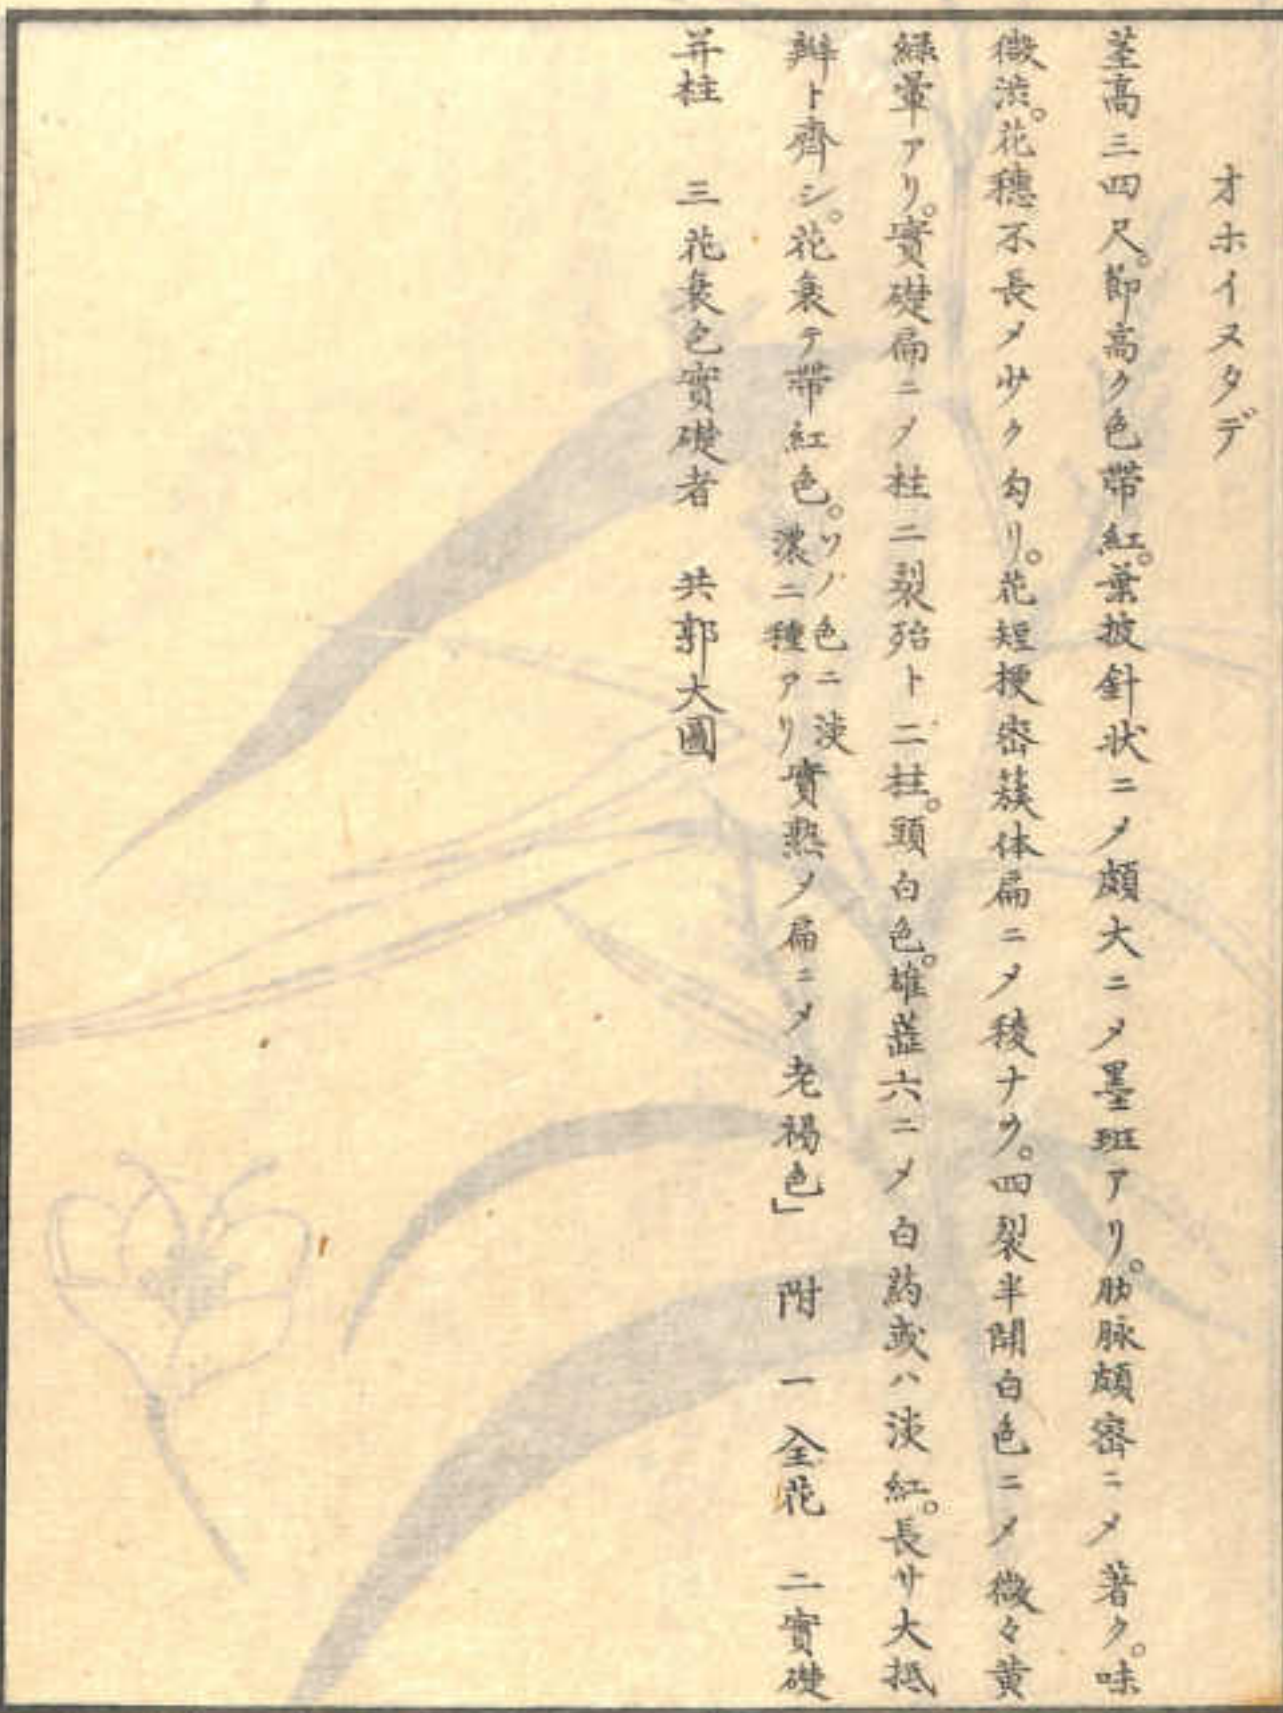 オホイヌタデ
茎高三四尺。節高ク色帶紅。葉披針状ニ〆頗大ニ〆墨斑アリ。肋脉頗密ニ〆著ク。味
微渋。花穗不長〆少ク匀リ。花短梗密蔟体扁ニ〆稜ナク。四裂半開白色ニ〆微々黄
緑暈アリ。實礎扁ニ〆柱二裂殆ト二柱。頭白色。雄蕋六ニ〆白葯或ハ淡紅。長サ大抵
瓣ト齊シ。花衰テ帶紅色。ソノ色ニ淡濃二種アリ實熟〆扁ニ〆老褐色」 附 一全花 二實礎
并柱 三花衰色實礎者 共郭大圖